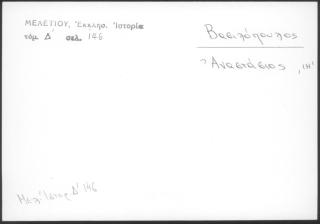 ΜΕΛΕΤΙΟΥ, Ἐκκλησ. Ἱστορία
τόμ Δ΄ σελ. 146
Βασιλόπουλος
Ἀναστάσιος, ιη΄
Μελ. Ἱστορ Δ΄ 146